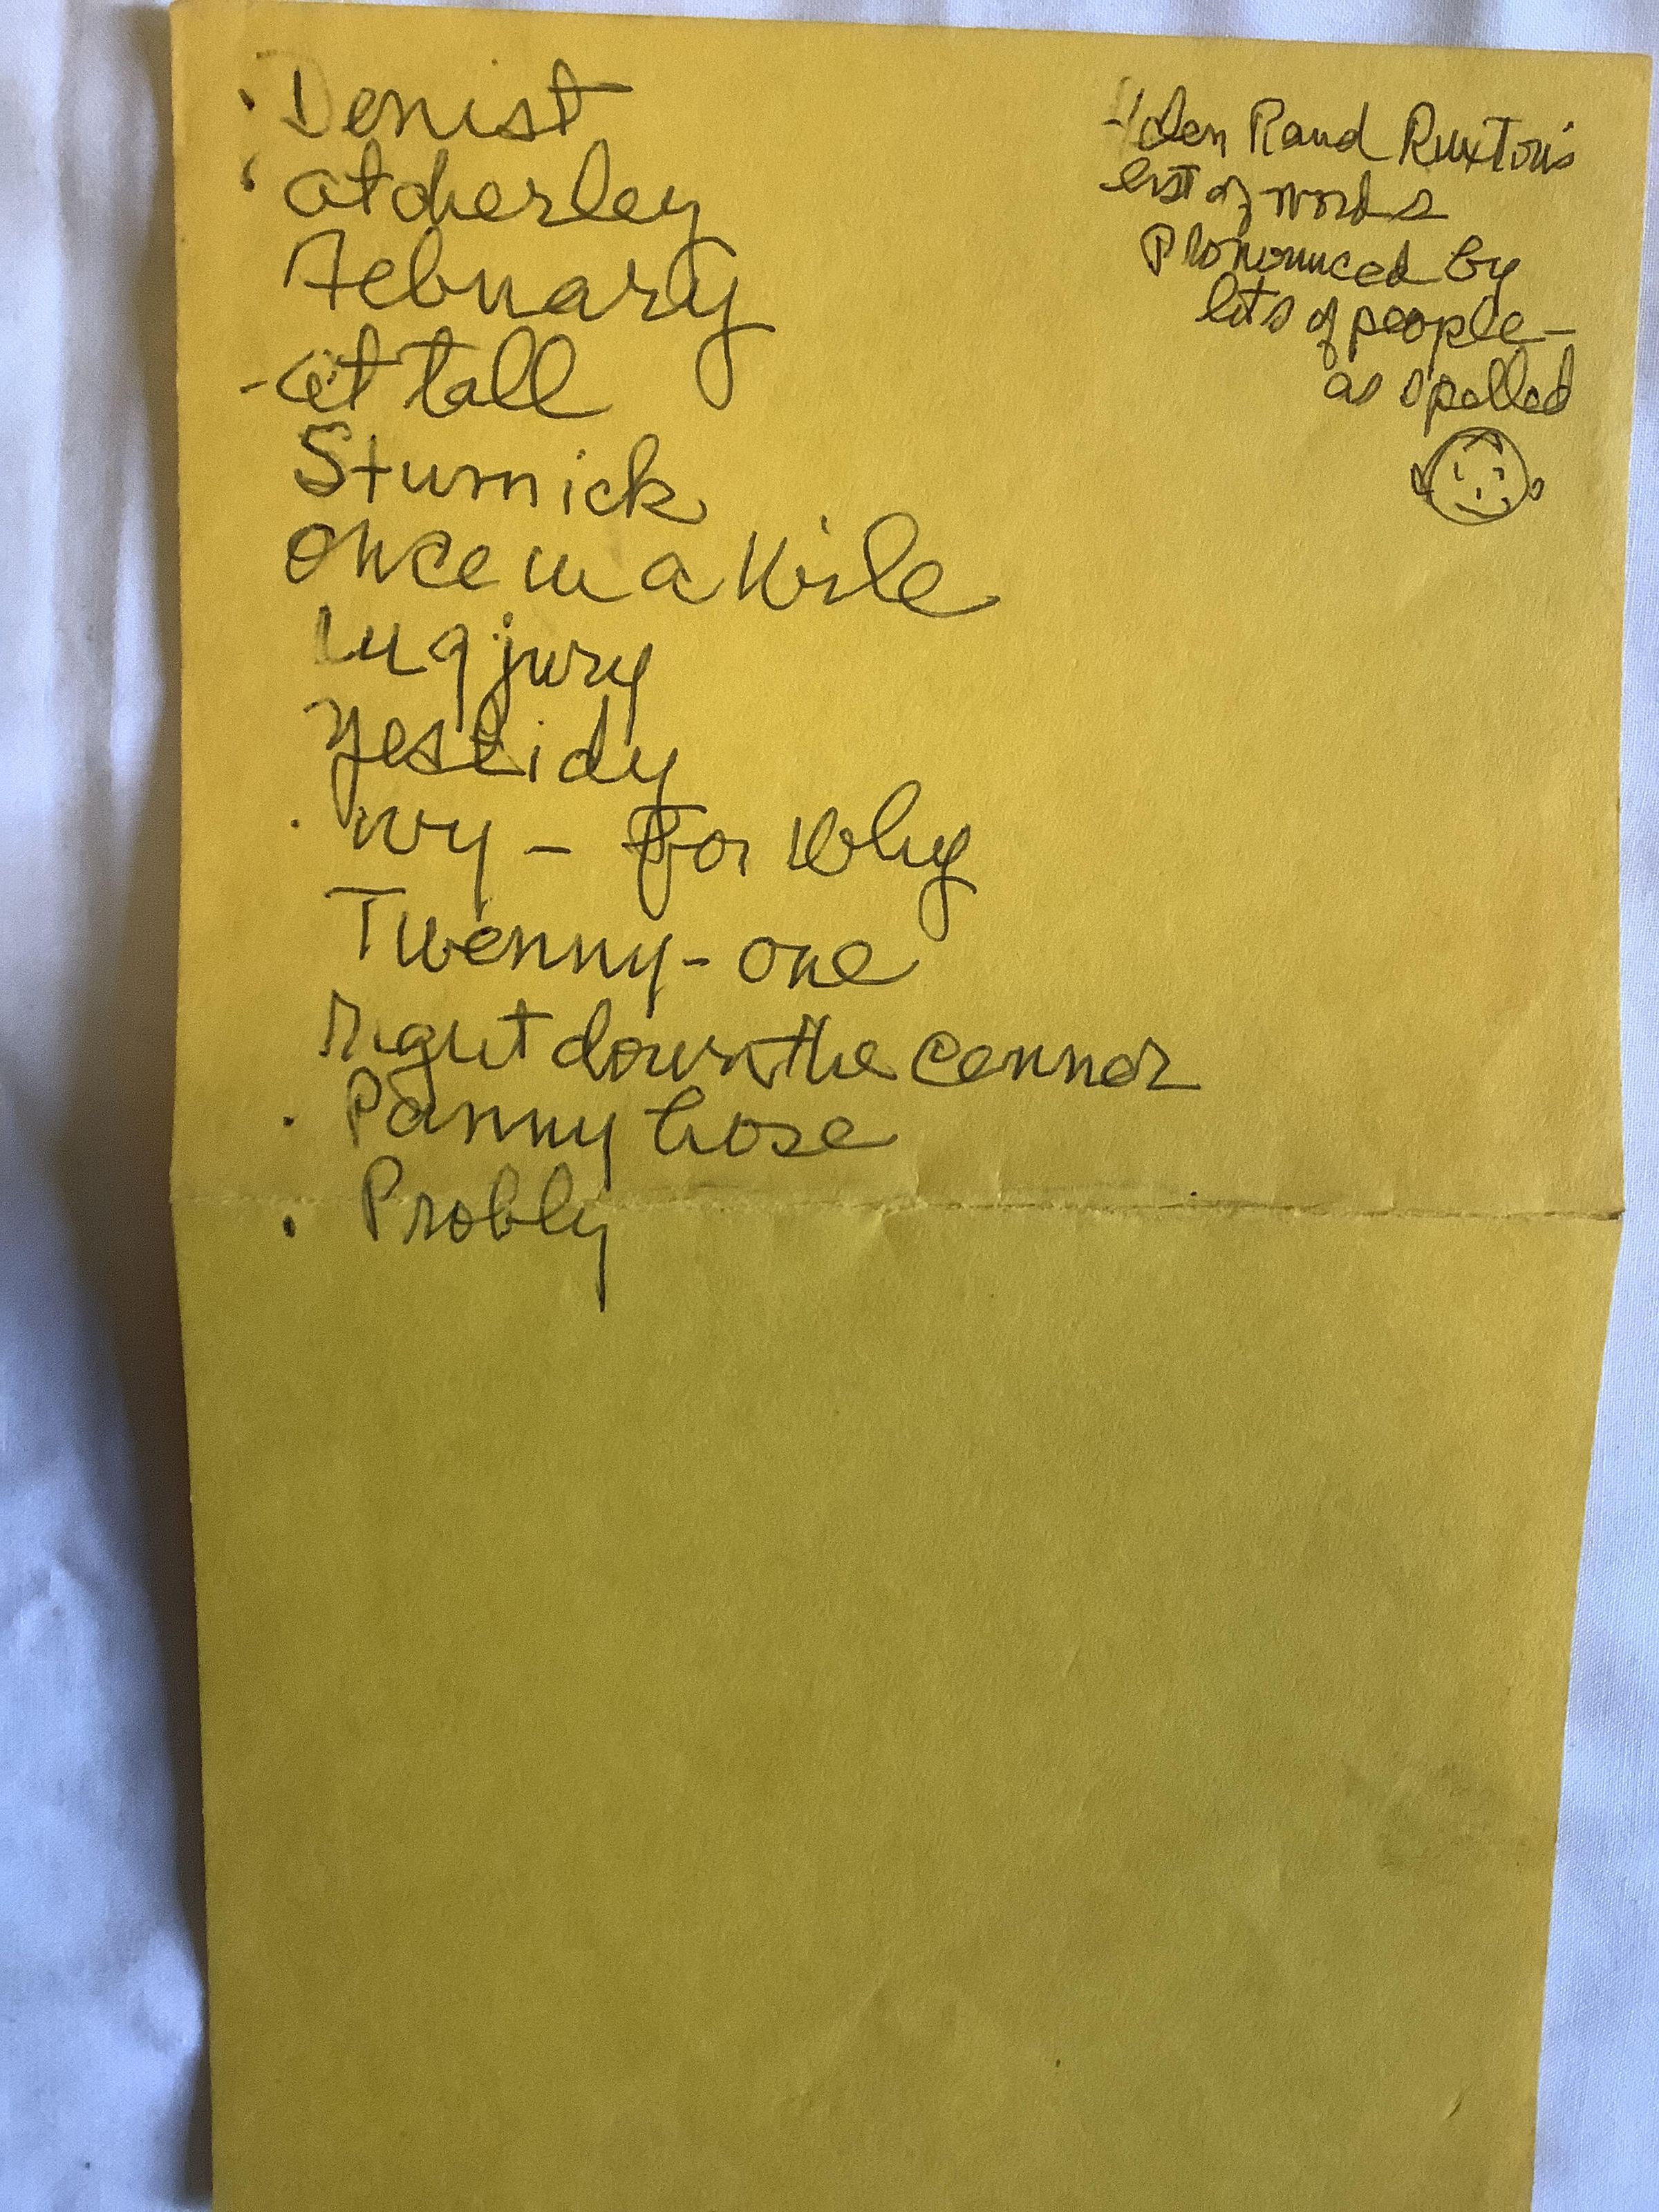 Denist
atcherley
Febuary
- at tall
Sturnick
Once in a Wile
Lugjury
Yestidy
Wy - For Why
Twenny-one
Right down the cennor
Panny hose
Probly
Rand Ruxton's
list of words
Pronounced by
lots of people -
as spelled